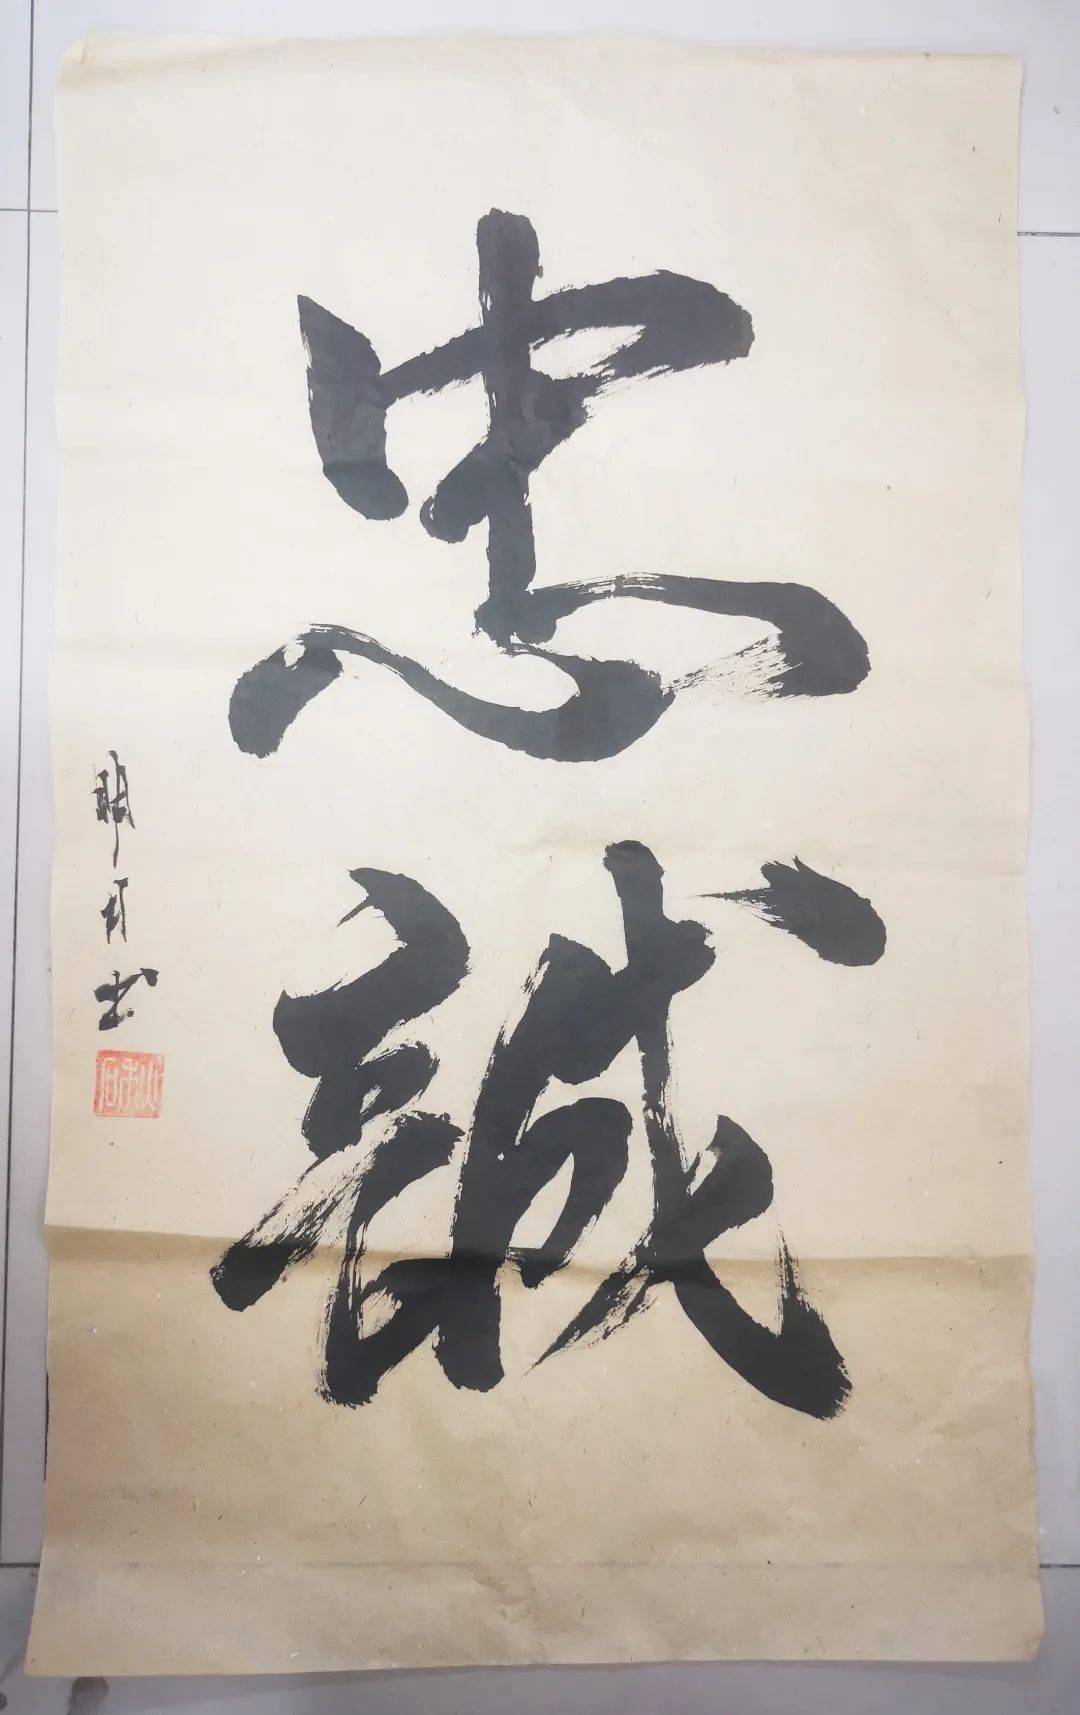 忠誠
明月书